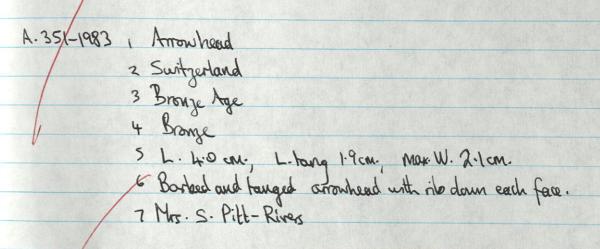 A.351-1983 1 Arrowhead
2 Switzerland
3 Bronze Age
4 Bronze
5 L. 4.0 cm., L.tang 1.9cm., max. W. 2.1cm.
6 Barbed and tanged arrowhead with rib down each face.
7 Mrs. S. Pitt-Rivers